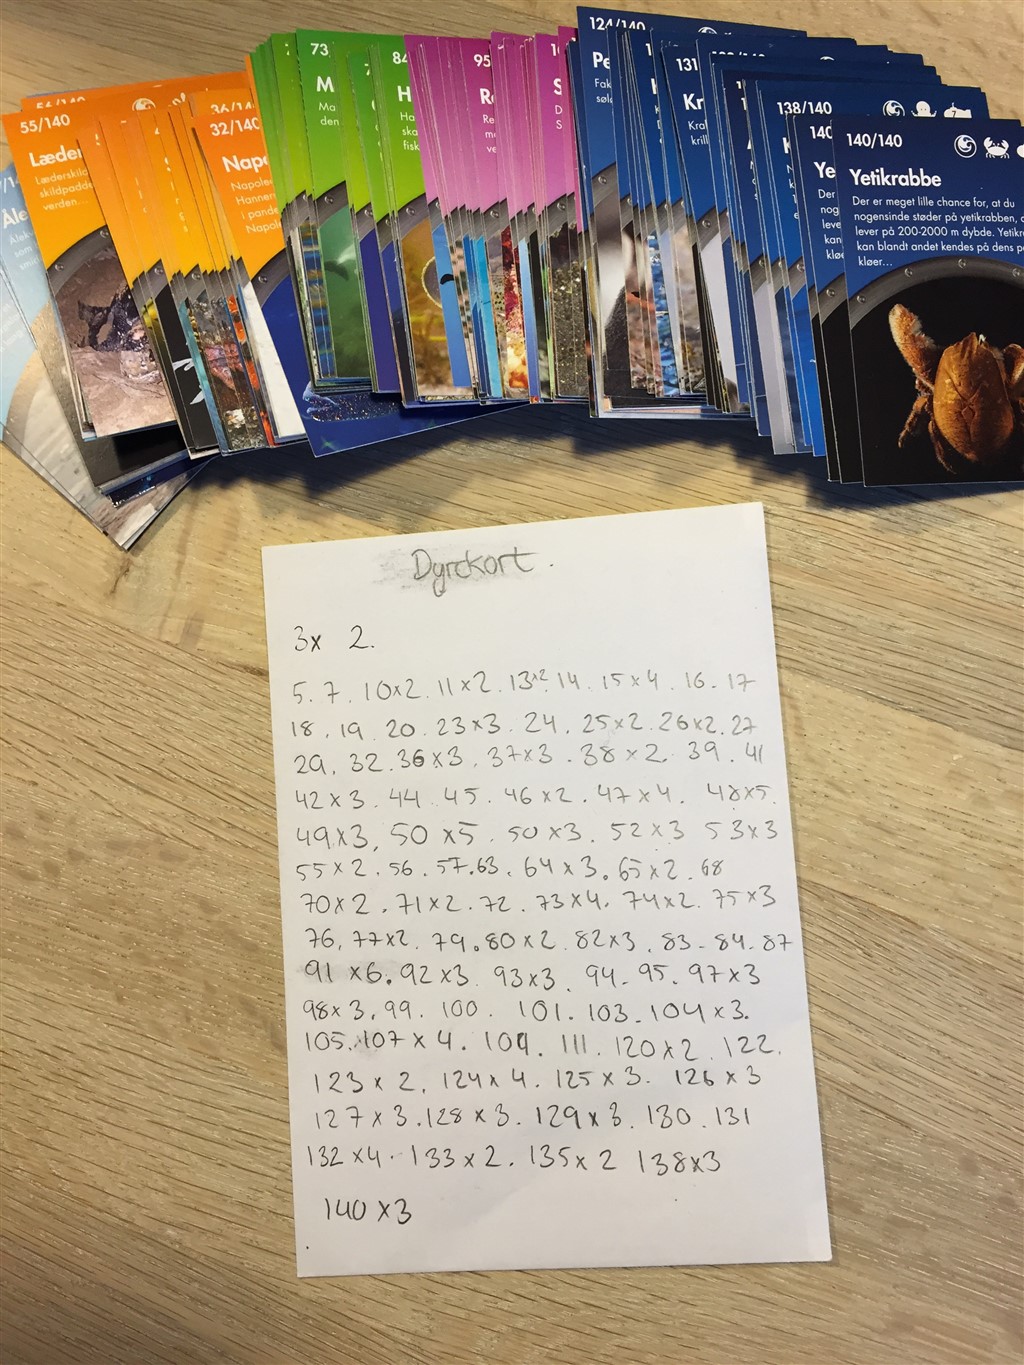 124/140
73
84
95
131
54/140
36/140
138/140
55/140
32/140
140
140/140
Læder
Læderskild
skildpadde
verden...
Napo
Napoleo
Hanner
i pande
Napol
M
Ma
den
H
Ha
ska
fisk
R
Re
me
ve
S
D
S
Pe
Fak
søle
Kr
Kraf
krill
Ye
Der
nog
leve
kan
kløe
Yetikrabbe
Der er meget lille chance for, at du
nogensinde støder på yetikrabben, d
lever på 200-2000 m dybde. Yetikra
kan blandt andet kendes på dens p
kløer...
Dyrekort.
3x 2.
5. 7. 10x2. 11x2. 13x2. 14. 15x4. 16. 17
18. 19. 20. 23x3. 24. 25x2. 26x2. 27
29. 32. 36x3. 37x3. 38x2. 39. 41
42x3. 44. 45. 46x2. 47x4. 48x5.
49x3, 50x5. 50x3. 52x3 53x3
55x2. 56. 57. 63. 64x3. 65x2. 68
70x2. 71x2. 72. 73x4. 74x2. 75x3
76. 77x2. 79. 80x2. 82x3. 83. 84. 87
91x6. 92x3. 93x3. 94. 95. 97x3
98x3. 99. 100. 101. 103. 104x3.
105. 107x4. 109. 111. 120x2. 122.
123x2. 124x4. 125x3. 126x3
127x3. 128x3. 129x3. 130. 131
132x4. 133x2. 135x2 138x3
140x3